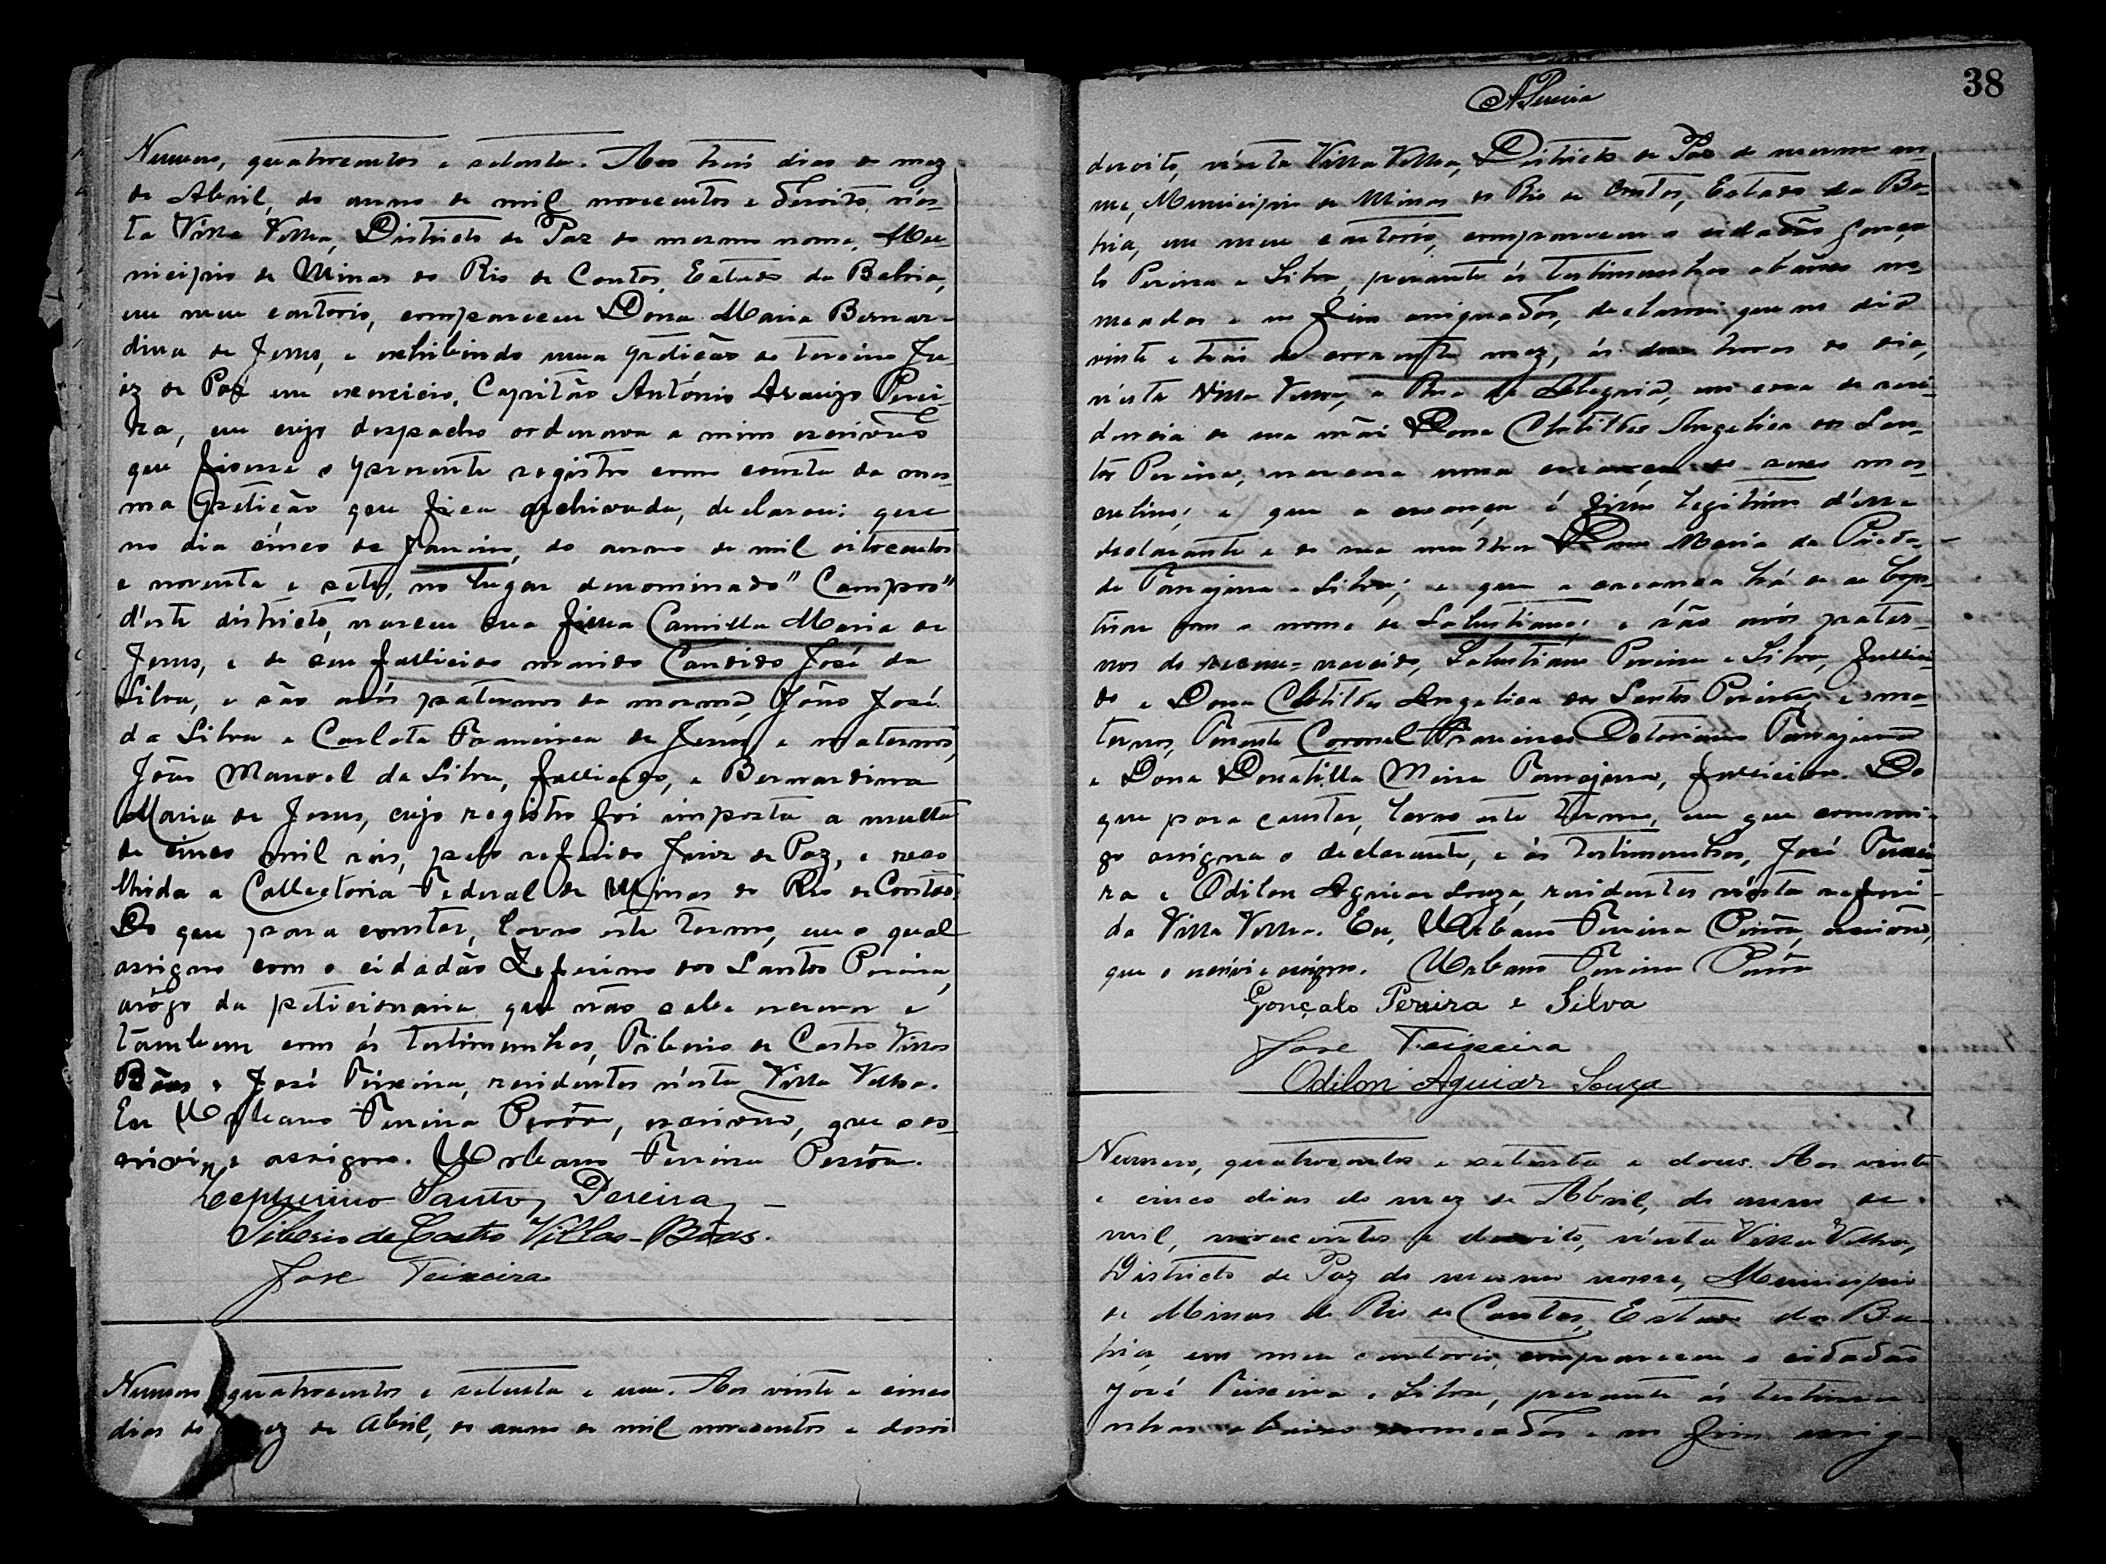 Numero, quatrocentos e setenta. Aos treis dias do mez
de Abril, do anno de mil novecentos e desoito, nes-
ta Villa Velha, Districto de Paz do mesmo nome, Mu-
nicipio de Minas do Rio de Contas, Estado da Bahia,
em meu cartorio, compareceu Dona Maria Bernar-
dina de Jesus, e exhibindo uma petição ao terceiro Ju-
iz de Paz em exercicio, Capitão Antonio Araujo Perei-
ra, em cujo despacho ordenava a mim escrivão
que fisesse o presente registro como consta da mes-
ma petição que fica archivada, declarou: que
no dia cinco de Janeiro, do anno de mil oitocentos
e noventa e sete, no lugar denominado "Campos"
d'este districto, nasceu sua filha Camilla Maria de
Jesus, e de seu fallecido marido Candido José da
Silva, e são avós paternos da mesma, João José
da Silva e Carlota Francisca de Jesus, e maternos,
João Manoel da Silva, fallecido, e Bernardina
Maria de Jesus, cujo registro foi imposta a multa
de cinco mil réis, pelo referido Juiz de Paz, e reco-
lhida a Collectoria Federal de Minas do Rio de Contas.
Do que para constar, lavro este termo, em o qual
assigno com o cidadão Zeferino dos Santos Pereira,
arôgo da peticionaria que não sabe escrever e
tambem com ás testimunhas, Tiberio de Castro Villas
Bôas e José Teixeira, residentes n'esta Villa Velha.
Eu Urbano Pereira, escrivão, que o es-
crivi, e assigno. Urbano
Zepherino Santos Pereira
Tiberio de Castro Villas-Bôas.
Jose Teixeira
Numero, quatrocentos e setenta e um. Aos vinte e cinco
dias do mez de Abril, do anno de mil novecentos e desoi
APereira
38
desoito, n'esta Villa Velha, Districto de Paz do mesmo no-
me, Municipio de Minas do Rio de Contas, Estado da Ba-
hia, em meu cartorio, compareceu o cidadão Gonça-
lo Pereira e Silva, perante ás testimunhas abaixo no-
meadas e no fim assignadas, declarou: que no dia
vinte e treis do corrente mez, ás horas do dia,
n'esta Villa Velha, a Rua da Alegria, em casa de resi-
dencia de sua mãi Dona Clotildes Angelica dos San-
tos Pereira, nasceu uma creança do sexo mas-
culino; e que a creança é filho legitimo d'elle
declarante e de sua mulher Dona Maria da Pieda-
de Tanajura e Silva; e que a creança há de se bap-
tisar com o nome de Salustiano; e são avós pater-
nos do recem-nascido, Salustiano Pereira e Silva, falleci-
do e Dona Clotildes Angelica dos Santos Pereira, e ma-
ternos, Tenente Coronel Francisco Tanajura
e Dona Donatilla Meira Tanajura, fallecida. Do
que para constar, lavro este termo, em que commi-
go assigna o declarante, e ás testimunhas, José Teixei-
ra e Odilon Aguiar Souza, residentes n'esta referi-
da Villa Velha. Eu, Urbano Pereira, escrivão,
que o escrivi e assigno. Urbano
Gonçalo Pereira e Silva
Jose Teixeira
Odilon Aguiar Souza
Numero, quatrocentos e setenta e dous. Aos vinte
e cinco dias do mez de Abril, do anno de
mil, novecentos e desoito, n'esta Villa Velha,
Districto de Paz do mesmo nome, Municipio
de Minas do Rio de Contas, Estado da Ba-
hia, em meu cartorio, compareceu o cidadão
José Teixeira e Silva, perante ás testimu-
nhas abaixo nomeadas e no fim assig-